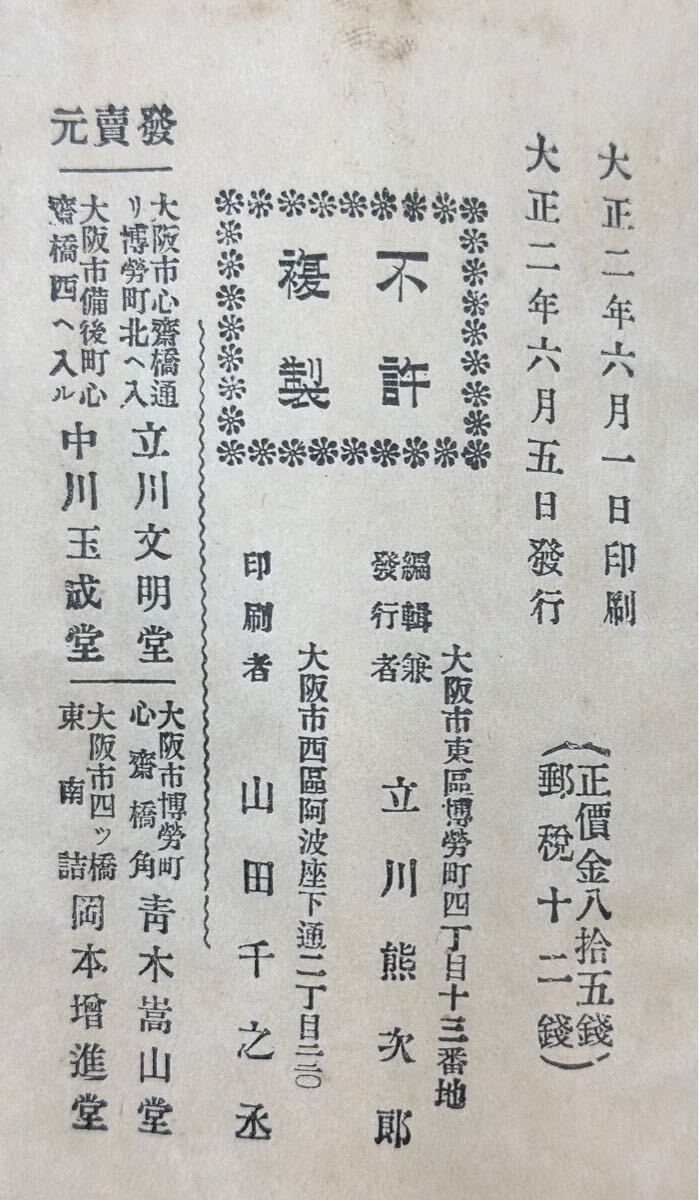 大正二年六月一日印刷
大正二年六月五日發行
(正價金八拾五錢
郵稅十二錢)
不許
複製
大阪市東區博勞町四丁目十三番地
編輯兼
發行者
立川熊次郎
大阪市西區阿波座下通二丁目二二〇
印刷者
山田千之丞
發賣元
大阪市心齋橋通
リ博勞町北ヘ入
立川文明堂
大阪市博勞町
心齋橋角
靑木嵩山堂
大阪市備後町心
齋橋西ヘ入ル
中川玉成堂
大阪市四ッ橋
東南詰
岡本增進堂